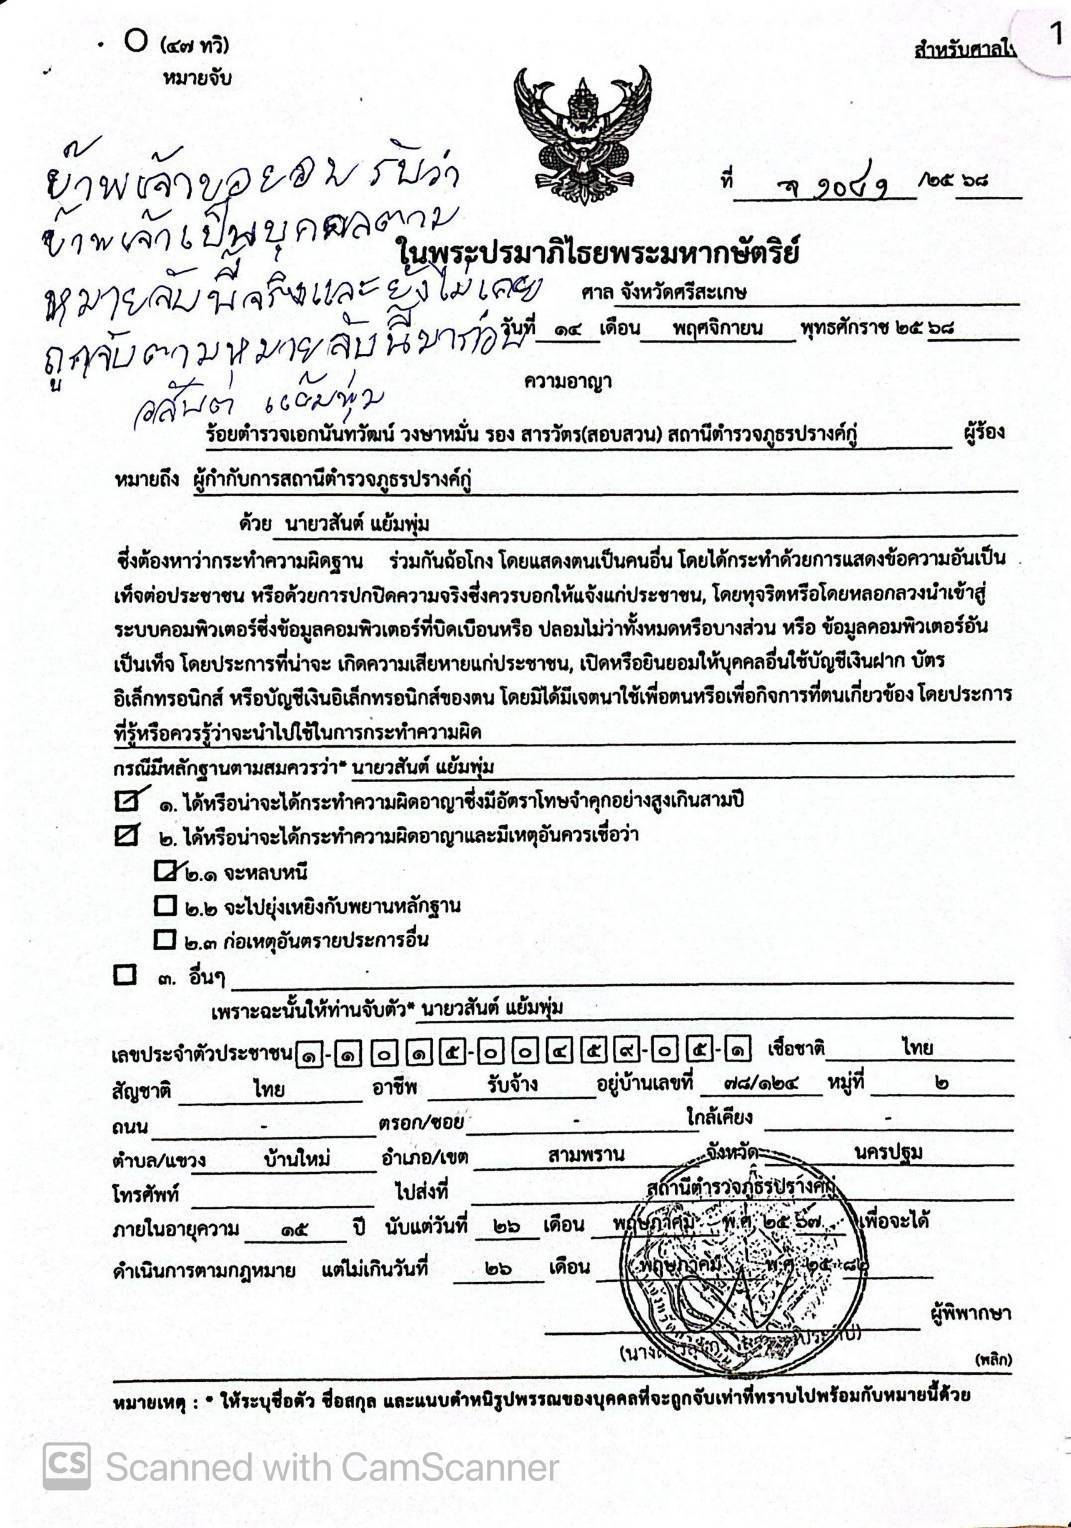 (๔๗ ทวิ)
หมายจับ
สำหรับศาลใ
1
ข้าพเจ้าขอยอมรับว่า
ข้าพเจ้าเป็นบุคคลตาม
หมายจับนี้จริงและยังไม่เคย
ถูกจับตามหมายจับนี้มาก่อน
วสันต์ แย้มพุ่ม
ที่ /๒๕๖๘
ในพระปรมาภิไธยพระมหากษัตริย์
ศาล จังหวัดศรีสะเกษ
วันที่ ๑๔ เดือน พฤศจิกายน พุทธศักราช ๒๕๖๘
ความอาญา
ร้อยตำรวจเอกนันทวัฒน์ วงษาหมั่น รอง สารวัตร(สอบสวน) สถานีตำรวจภูธรปรางค์กู่ ผู้ร้อง
หมายถึง ผู้กำกับการสถานีตำรวจภูธรปรางค์กู่
ด้วย นายวสันต์ แย้มพุ่ม
ซึ่งต้องหาว่ากระทำความผิดฐาน ร่วมกันฉ้อโกง โดยแสดงตนเป็นคนอื่น โดยได้กระทำด้วยการแสดงข้อความอันเป็น
เท็จต่อประชาชน หรือด้วยการปกปิดความจริงซึ่งควรบอกให้แจ้งแก่ประชาชน, โดยทุจริตหรือโดยหลอกลวงนำเข้าสู่
ระบบคอมพิวเตอร์ซึ่งข้อมูลคอมพิวเตอร์ที่บิดเบือนหรือ ปลอมไม่ว่าทั้งหมดหรือบางส่วน หรือ ข้อมูลคอมพิวเตอร์อัน
เป็นเท็จ โดยประการที่น่าจะ เกิดความเสียหายแก่ประชาชน, เปิดหรือยินยอมให้บุคคลอื่นใช้บัญชีเงินฝาก บัตร
อิเล็กทรอนิกส์ หรือบัญชีเงินอิเล็กทรอนิกส์ของตน โดยมิได้มีเจตนาใช้เพื่อตนหรือเพื่อกิจการที่ตนเกี่ยวข้อง โดยประการ
ที่รู้หรือควรรู้ว่าจะนำไปใช้ในการกระทำความผิด
กรณีมีหลักฐานตามสมควรว่า* นายวสันต์ แย้มพุ่ม
๑. ได้หรือน่าจะได้กระทำความผิดอาญาซึ่งมีอัตราโทษจำคุกอย่างสูงเกินสามปี
๒. ได้หรือน่าจะได้กระทำความผิดอาญาและมีเหตุอันควรเชื่อว่า
๒.๑ จะหลบหนี
๒.๒ จะไปยุ่งเหยิงกับพยานหลักฐาน
๒.๓ ก่อเหตุอันตรายประการอื่น
๓. อื่นๆ
เพราะฉะนั้นให้ท่านจับตัว* นายวสันต์ แย้มพุ่ม
เลขประจำตัวประชาชน ๑-๑๐๑๕-๐๐๔๕๙-๐๕-๑ เชื้อชาติ ไทย
สัญชาติ ไทย อาชีพ รับจ้าง อยู่บ้านเลขที่ ๗๘/๑๒๔ หมู่ที่ ๒
ถนน - ตรอก/ซอย - ใกล้เคียง -
ตำบล/แขวง บ้านใหม่ อำเภอ/เขต สามพราน จังหวัด นครปฐม
โทรศัพท์ ไปส่งที่ สถานีตำรวจภูธรปรางค์กู่
ภายในอายุความ ๑๕ ปี นับแต่วันที่ ๒๖ เดือน พฤษภาคม พ.ศ. ๒๕๖๗ เพื่อจะได้
ดำเนินการตามกฎหมาย แต่ไม่เกินวันที่ ๒๖ เดือน พฤษภาคม พ.ศ. ๒๕๘๒
ผู้พิพากษา
(พลิก)
หมายเหตุ : * ให้ระบุชื่อตัว ชื่อสกุล และแนบตำหนิรูปพรรณของบุคคลที่จะถูกจับเท่าที่ทราบไปพร้อมกับหมายนี้ด้วย
CS Scanned with CamScanner